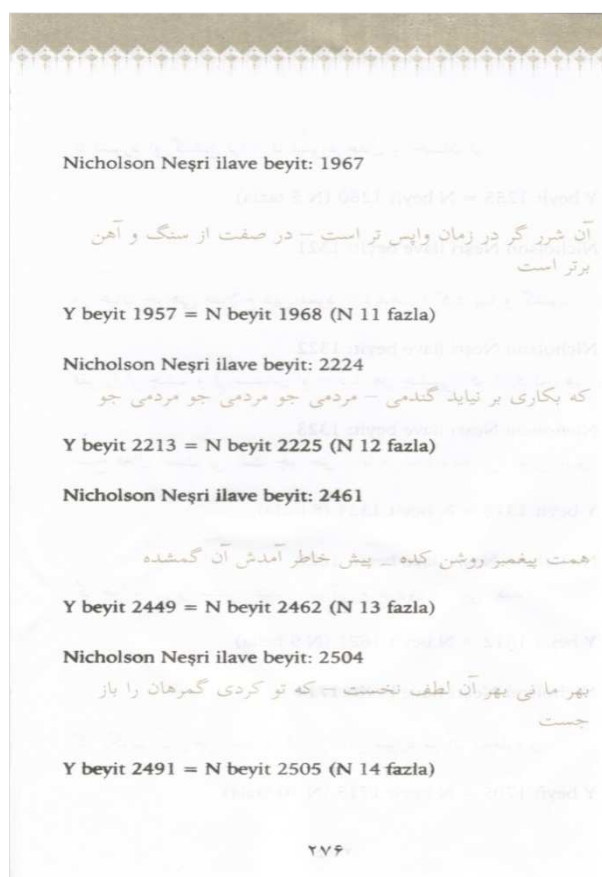 Nicholson Neşri ilave beyit: 1967
آن شرر گر در زمان واپس تر است – در صفت از سنگ و آهن
برتر است
Y beyit 1957 = N beyit 1968 (N 11 fazla)
Nicholson Neşri ilave beyit: 2224
که بکاری بر نیاید گندمی – مردمی جو مردمی جو مردمی جو
Y beyit 2213 = N beyit 2225 (N 12 fazla)
Nicholson Neşri ilave beyit: 2461
همت پیغمبر روشن کده – پیش خاطر آمدش آن گمشده
Y beyit 2449 = N beyit 2462 (N 13 fazla)
Nicholson Neşri ilave beyit: 2504
بهر ما نی بهر آن لطف نخست – که تو کردی گمرهان را باز
جست
Y beyit 2491 = N beyit 2505 (N 14 fazla)
۲۷۶